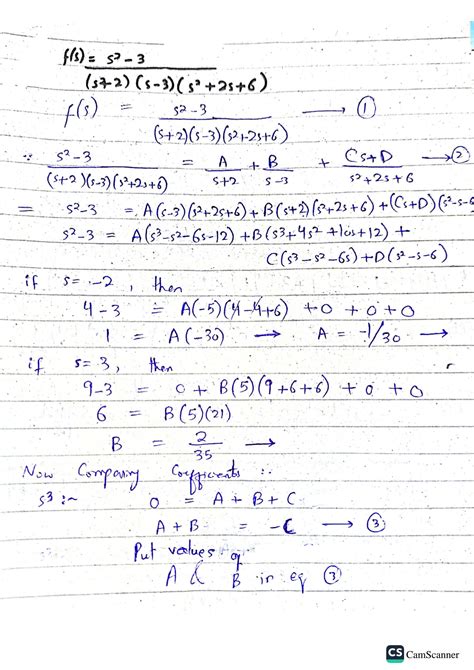 f(s) = s² - 3
(s+2) (s-3) (s² + 2s + 6)
f(s) = s² - 3 → ①
(s+2)(s-3)(s²+2s+6)
∵ s² - 3 = A + B + Cs+D → ②
(s+2)(s-3)(s²+2s+6) s+2 s-3 s²+2s+6
= s²-3 = A(s-3)(s²+2s+6) + B(s+2)(s²+2s+6) + (Cs+D)(s²-s-6
s²-3 = A(s³-s²-6s-12) + B(s³+4s²+10s+12) +
C(s³-s²-6s) + D(s²-s-6)
if s = -2, then
4-3 = A(-5)(4-4+6) + 0 + 0 + 0
1 = A(-30) → A = -1/30 →
if s= 3, then
9-3 = 0 + B(5)(9+6+6) + 0 + 0
6 = B(5)(21)
B = 2/35 →
Now Comparing Coefficients :-
s³ :~ 0 = A + B + C
A + B = -C → ③
Put values of
A & B in eq ③
CS CamScanner